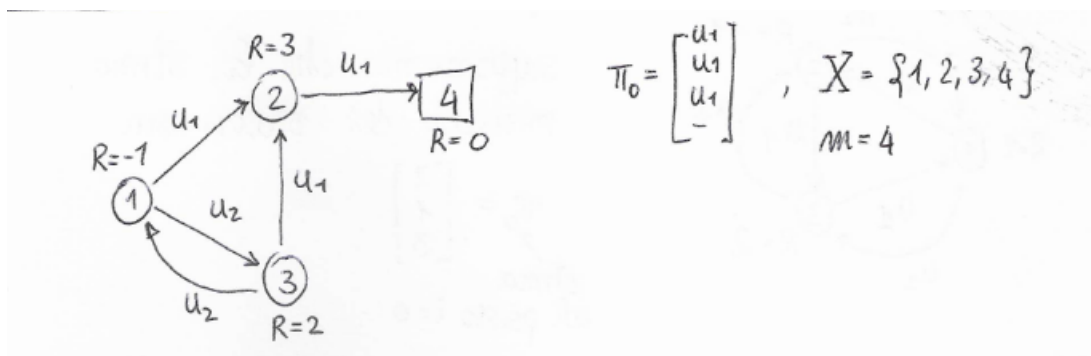 R=3
u1
2
4
R=0
u1
R=-1
1
u2
u1
3
u2
R=2
π0 = [u1
u1
u1
-] , X = {1, 2, 3, 4}
m=4